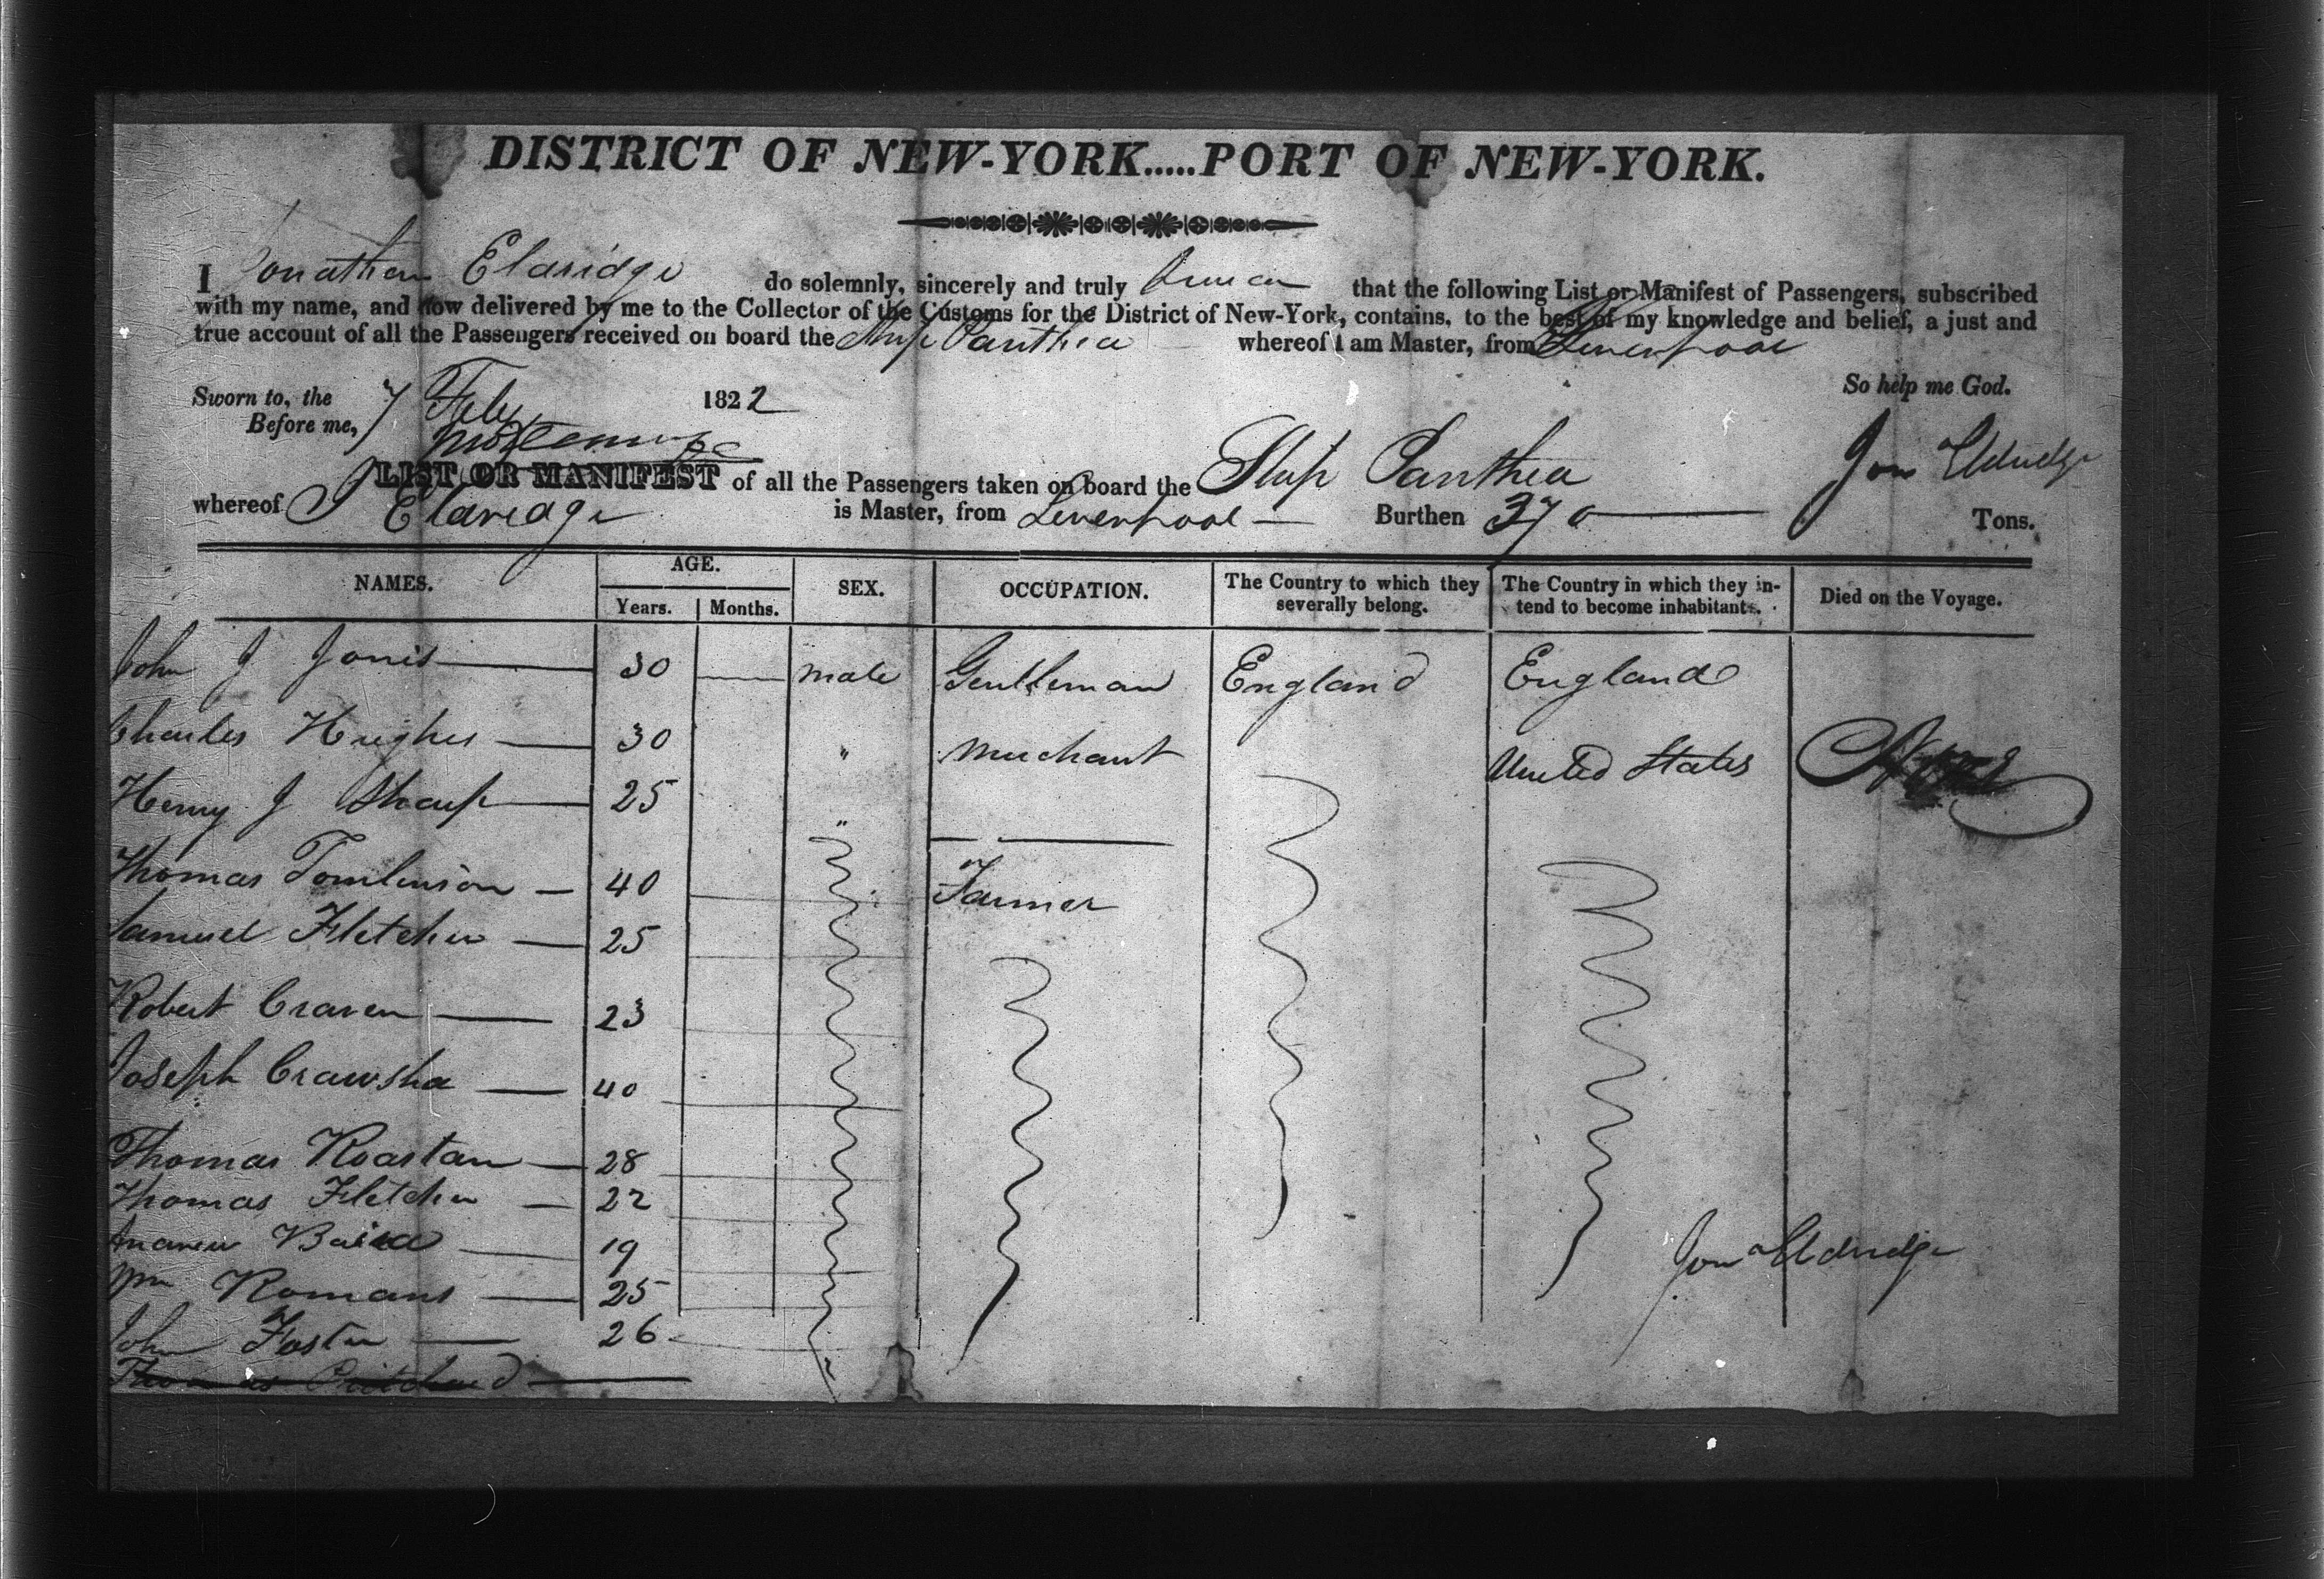 DISTRICT OF NEW-YORK.....PORT OF NEW-YORK.
I Jonathan Eldridge do solemnly, sincerely and truly swear that the following List or Manifest of Passengers, subscribed
with my name, and now delivered by me to the Collector of the Customs for the District of New-York, contains, to the best of my knowledge and belief, a just and
true account of all the Passengers received on board the Ship Panthea whereof I am Master, from Liverpool
Sworn to, the 7 Feby 1822 So help me God.
Before me,
Jon Eldridge
LIST OR MANIFEST of all the Passengers taken on board the Ship Panthea
whereof J Eldridge is Master, from Liverpool Burthen 370 Tons.
NAMES. AGE. SEX. OCCUPATION. The Country to which they severally belong. The Country in which they intend to become inhabitants. Died on the Voyage.
Years. Months.
John J Jones 30 male Gentleman England England
Charles Hughes 30 " Merchant United States
Henry J Sharp 25 "
Thomas Tomlinson 40 Farmer
Samuel Fletcher 25
Robert Craven 23
Joseph Crawsha 40
Thomas Roastan 28
Thomas Fletcher 22
Andrew Baird 19
Wm Romans 25
John Foster 26
Thomas Pritchard
Jon Eldridge